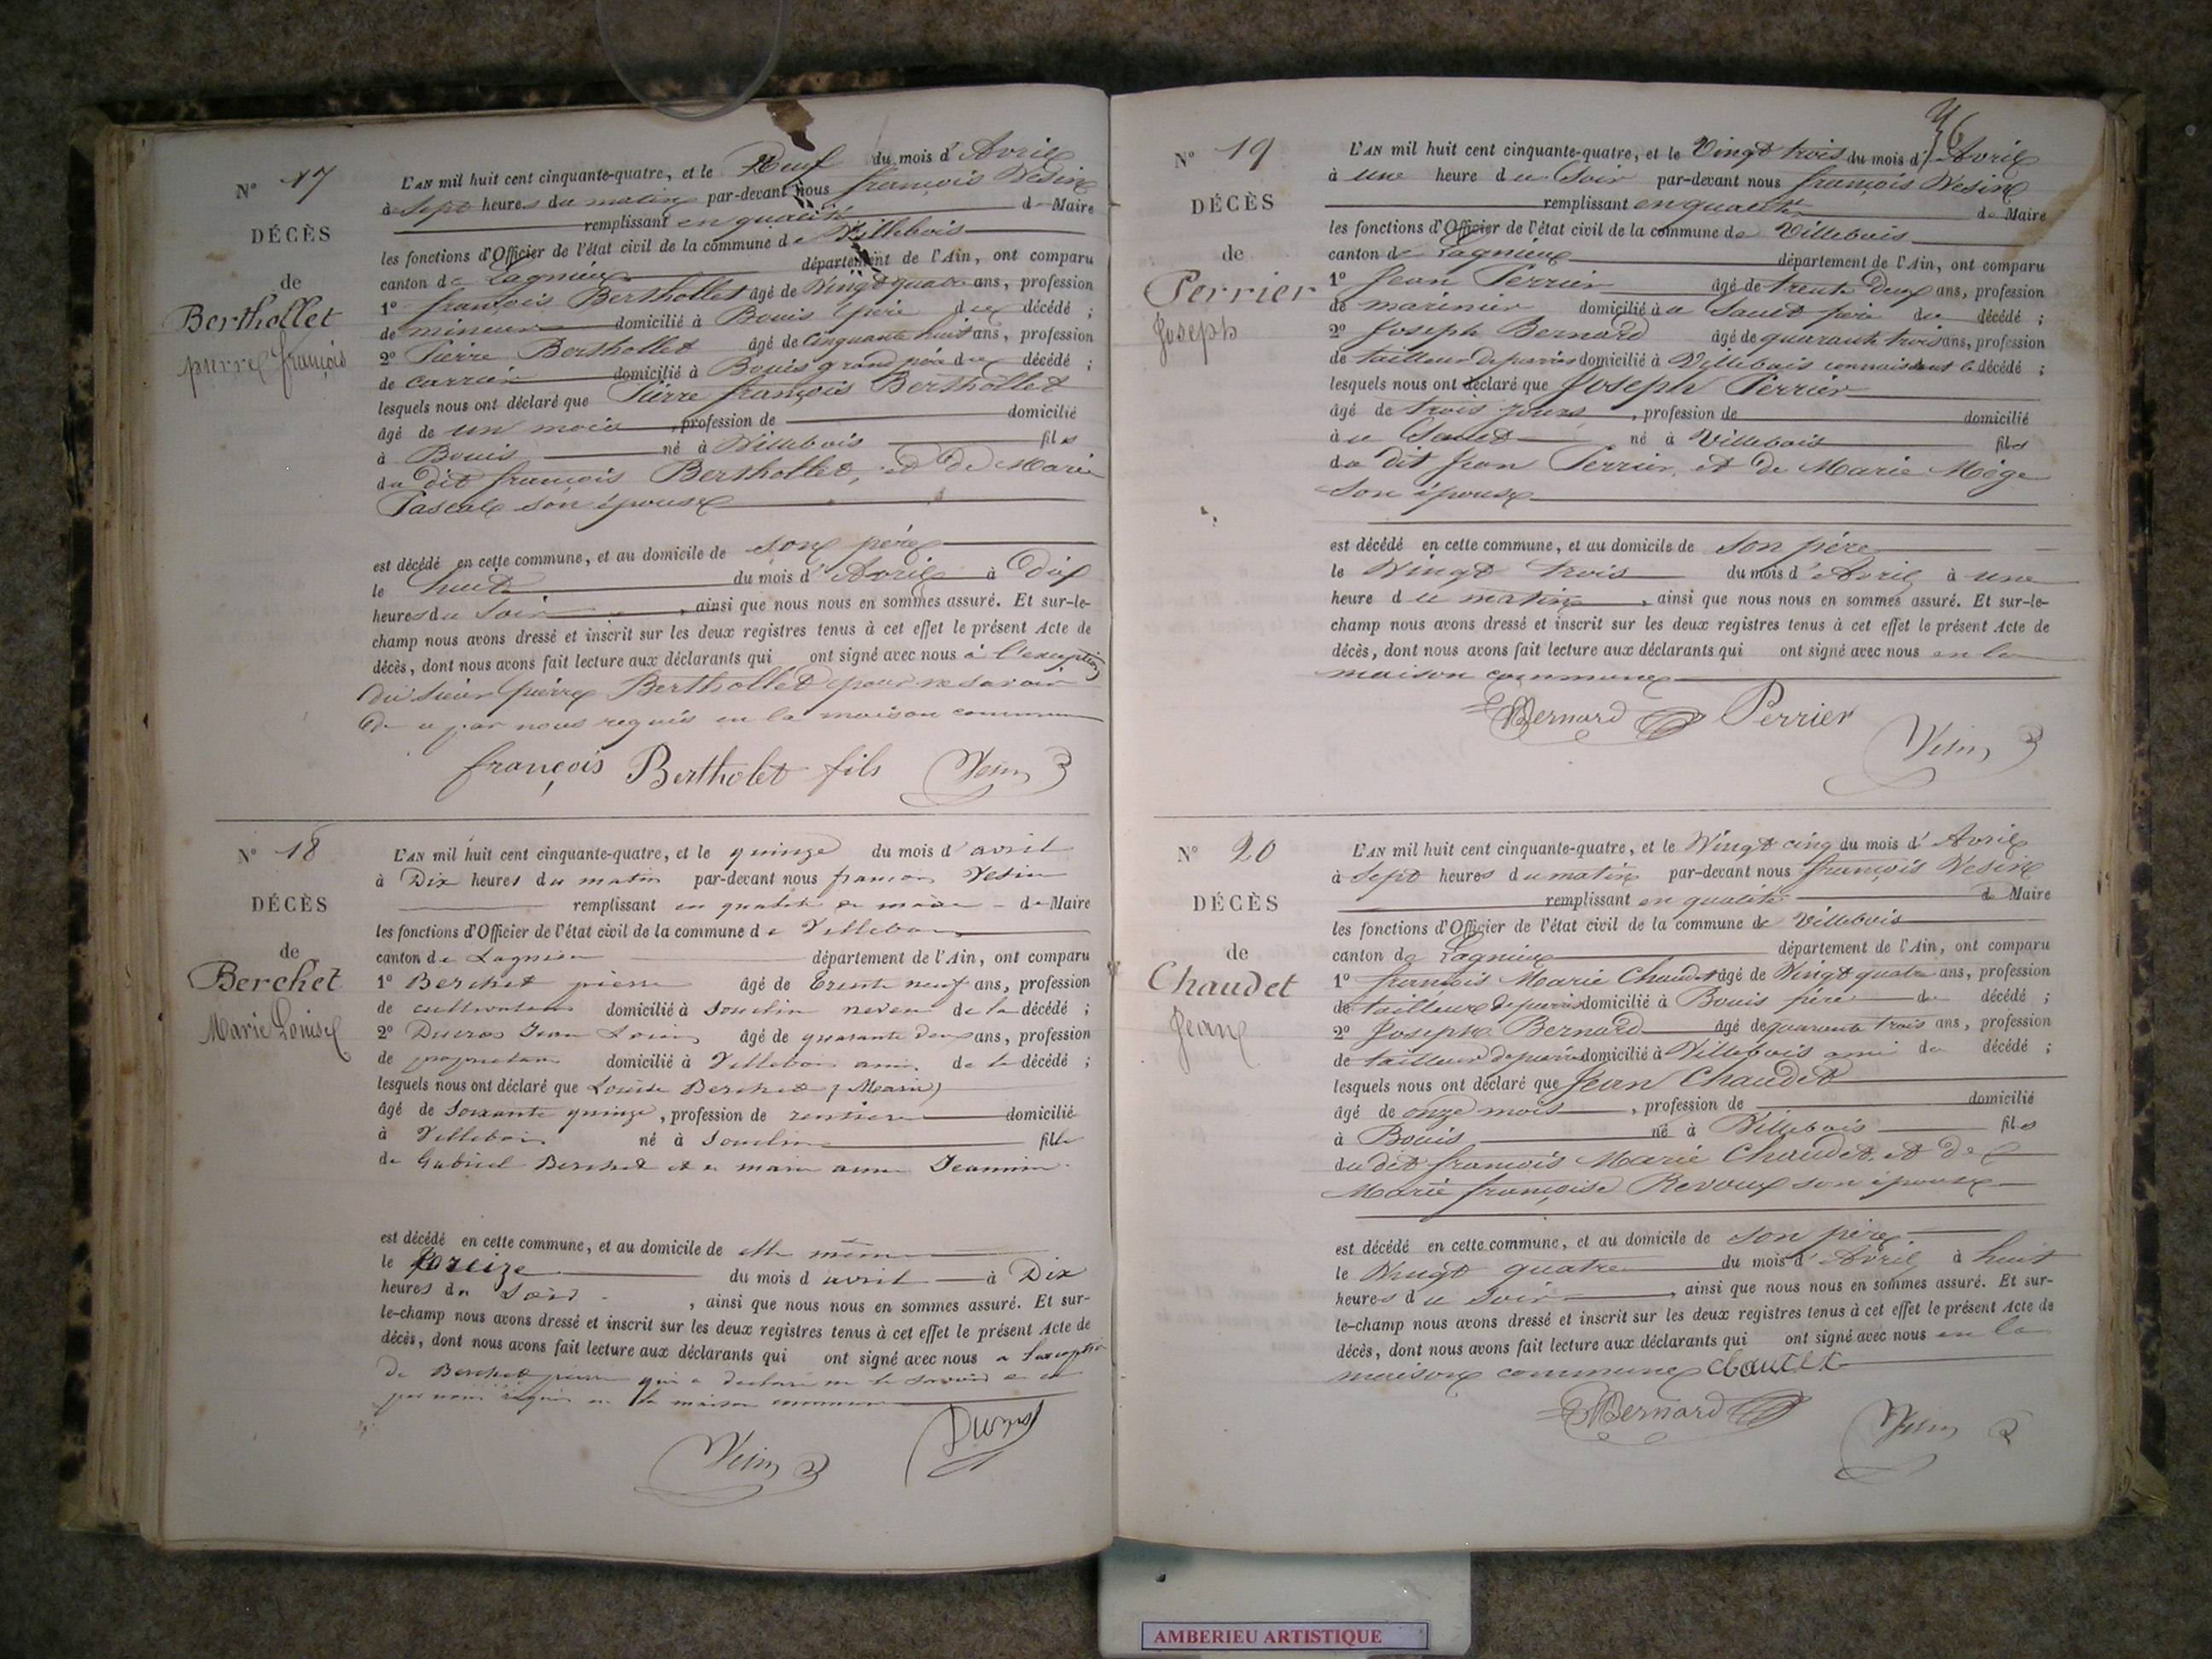 N° 17
DÉCÈS
de
Berthollet
pierre françois
L'AN mil huit cent cinquante-quatre, et le Neuf du mois d'Avril
à Sept heures du matin par-devant nous françois Vesin
remplissant en qualité de Maire
les fonctions d'Officier de l'état civil de la commune de Villebois
canton de Lagnieu département de l'Ain, ont comparu
1° françois Berthollet âgé de Vingt quatre ans, profession
de mineur domicilié à Bouis père du décédé ;
2° Pierre Berthollet âgé de Cinquante huit ans, profession
de carrier domicilié à Bouis grand père du décédé ;
lesquels nous ont déclaré que Pierre françois Berthollet
âgé de un mois, profession de domicilié
à Bouis né à Villebois fils
du dit françois Berthollet, et de Marie
Pascal son épouse
est décédé en cette commune, et au domicile de son père
le huit du mois d'Avril à Dix
heures du Soir, ainsi que nous nous en sommes assuré. Et sur-le-
champ nous avons dressé et inscrit sur les deux registres tenus à cet effet le présent Acte de
décès, dont nous avons fait lecture aux déclarants qui ont signé avec nous à l'exception
du sieur pierre Berthollet pour ne savoir
de ce par nous requis en la maison commune
françois Bertholet fils Vesin
N° 18
DÉCÈS
de
Berchet
Marie Louise
L'AN mil huit cent cinquante-quatre, et le quinze du mois d'avril
à Dix heures du matin par-devant nous francois Vesin
remplissant en qualité de maire de Maire
les fonctions d'Officier de l'état civil de la commune de Villebois
canton de Lagnieu département de l'Ain, ont comparu
1° Berchet pierre âgé de Trente neuf ans, profession
de cultivateur domicilié à Souclin neveu de la décédé ;
2° Ducros Jean Louis âgé de quarante deux ans, profession
de proprietaire domicilié à Villebois ami de la décédé ;
lesquels nous ont déclaré que Louise Berchet (Marie)
âgé de Soixante quinze, profession de rentiere domicilié
à Villebois né à Souclin fille
de Gabriel Berchet et de marie anne Jeannin
est décédé en cette commune, et au domicile de elle même
le treize du mois d avril à Dix
heures du Soir, ainsi que nous nous en sommes assuré. Et sur-
le-champ nous avons dressé et inscrit sur les deux registres tenus à cet effet le présent Acte de
décès, dont nous avons fait lecture aux déclarants qui ont signé avec nous a l'exception
de Berchet pierre qui a declaré ne le savoir de ce
par nous requis en la maison commune
Vesin Ducros
N° 19
DÉCÈS
de
Perrier
Joseph
L'AN mil huit cent cinquante-quatre, et le Vingt trois du mois d'Avril
à une heure du Soir par-devant nous françois Vesin
remplissant en qualité de Maire
les fonctions d'Officier de l'état civil de la commune de Villebois
canton de Lagnieu département de l'Ain, ont comparu
1° Jean Perrier âgé de trente Deux ans, profession
de marinier domicilié à u Sault père du décédé ;
2° Joseph Bernard âgé de quarante trois ans, profession
de tailleur de pierres domicilié à Villebois connaissant le décédé ;
lesquels nous ont déclaré que Joseph Perrier
âgé de trois jours, profession de domicilié
à u Sault né à Villebois fils
du dit Jean Perrier, et de Marie Mége
son épouse
est décédé en cette commune, et au domicile de son père
le Vingt trois du mois d'Avril à une
heure du matin, ainsi que nous nous en sommes assuré. Et sur-le-
champ nous avons dressé et inscrit sur les deux registres tenus à cet effet le présent Acte de
décès, dont nous avons fait lecture aux déclarants qui ont signé avec nous en la
maison commune
Bernard Perrier
Vesin
N° 20
DÉCÈS
de
Chaudet
Jean
L'AN mil huit cent cinquante-quatre, et le Vingt cinq du mois d'Avril
à Sept heures du matin par-devant nous françois Vesin
remplissant en qualité de Maire
les fonctions d'Officier de l'état civil de la commune de Villebois
canton de Lagnieu département de l'Ain, ont comparu
1° françois Marie Chaudet âgé de Vingt quatre ans, profession
de tailleur de pierres domicilié à Bouis père du décédé ;
2° Joseph Bernard âgé de quarante trois ans, profession
de tailleur de pierres domicilié à Villebois ami du décédé ;
lesquels nous ont déclaré que Jean Chaudet
âgé de onze mois, profession de domicilié
à Bouis né à Villebois fils
du dit francois Marie Chaudet, et de
Marie françoise Revoux son épouse
est décédé en cette commune, et au domicile de son père
le Vingt quatre du mois d'Avril à huit
heures du soir, ainsi que nous nous en sommes assuré. Et sur-
le-champ nous avons dressé et inscrit sur les deux registres tenus à cet effet le présent Acte de
décès, dont nous avons fait lecture aux déclarants qui ont signé avec nous en la
maison commune
Bernard
Vesin
AMBERIEU ARTISTIQUE